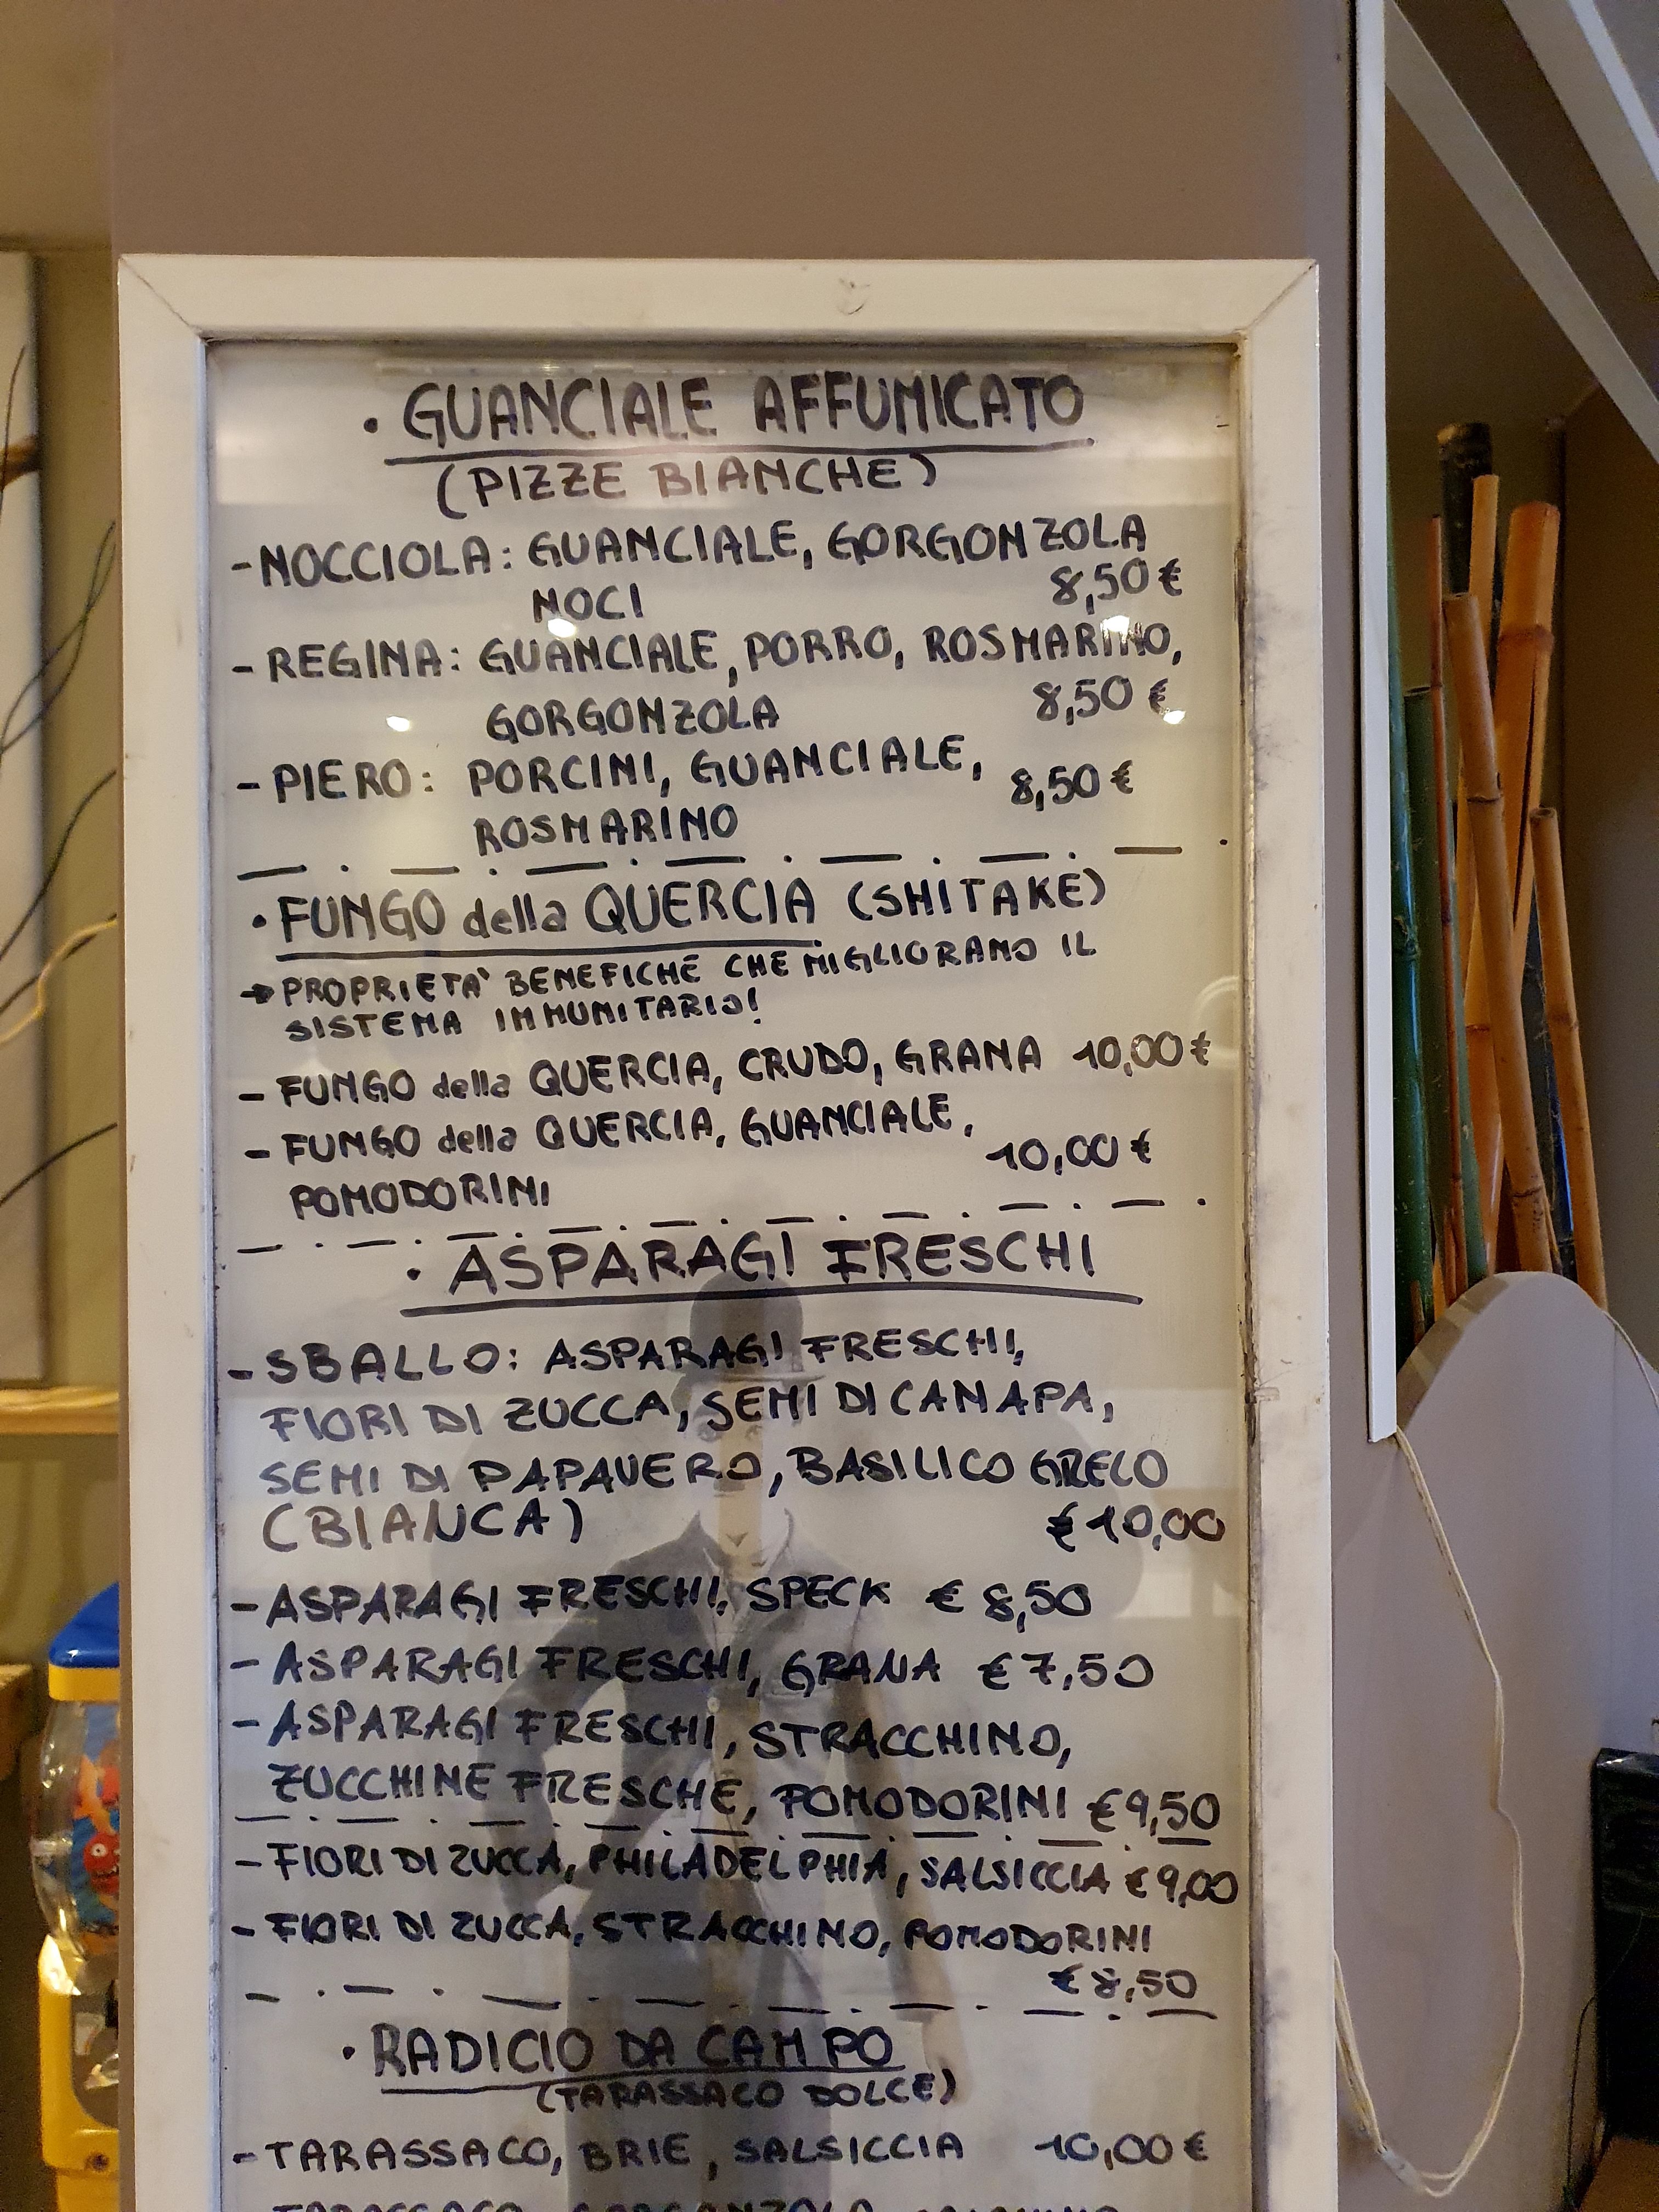 • GUANCIALE AFFUMICATO
(PIZZE BIANCHE)
- NOCCIOLA: GUANCIALE, GORGONZOLA
NOCI 8,50 €
- REGINA: GUANCIALE, PORRO, ROSMARINO,
GORGONZOLA 8,50 €
- PIERO: PORCINI, GUANCIALE, 8,50 €
ROSMARINO
• FUNGO della QUERCIA (SHITAKE)
→ PROPRIETA' BENEFICHE CHE MIGLIORANO IL
SISTEMA IMMUNITARIO!
- FUNGO della QUERCIA, CRUDO, GRANA 10,00 €
- FUNGO della QUERCIA, GUANCIALE, 10,00 €
POMODORINI
• ASPARAGI FRESCHI
- SBALLO: ASPARAGI FRESCHI,
FIORI DI ZUCCA, SEMI DI CANAPA,
SEMI DI PAPAVERO, BASILICO GRECO
(BIANCA) € 10,00
- ASPARAGI FRESCHI, SPECK € 8,50
- ASPARAGI FRESCHI, GRANA € 7,50
- ASPARAGI FRESCHI, STRACCHINO,
ZUCCHINE FRESCHE, POMODORINI € 9,50
- FIORI DI ZUCCA, PHILADELPHIA, SALSICCIA € 9,00
- FIORI DI ZUCCA, STRACCHINO, POMODORINI
€ 8,50
• RADICIO DA CAMPO
(TARASSACO DOLCE)
- TARASSACO, BRIE, SALSICCIA 10,00 €
TARASSACO GORGONZOLA